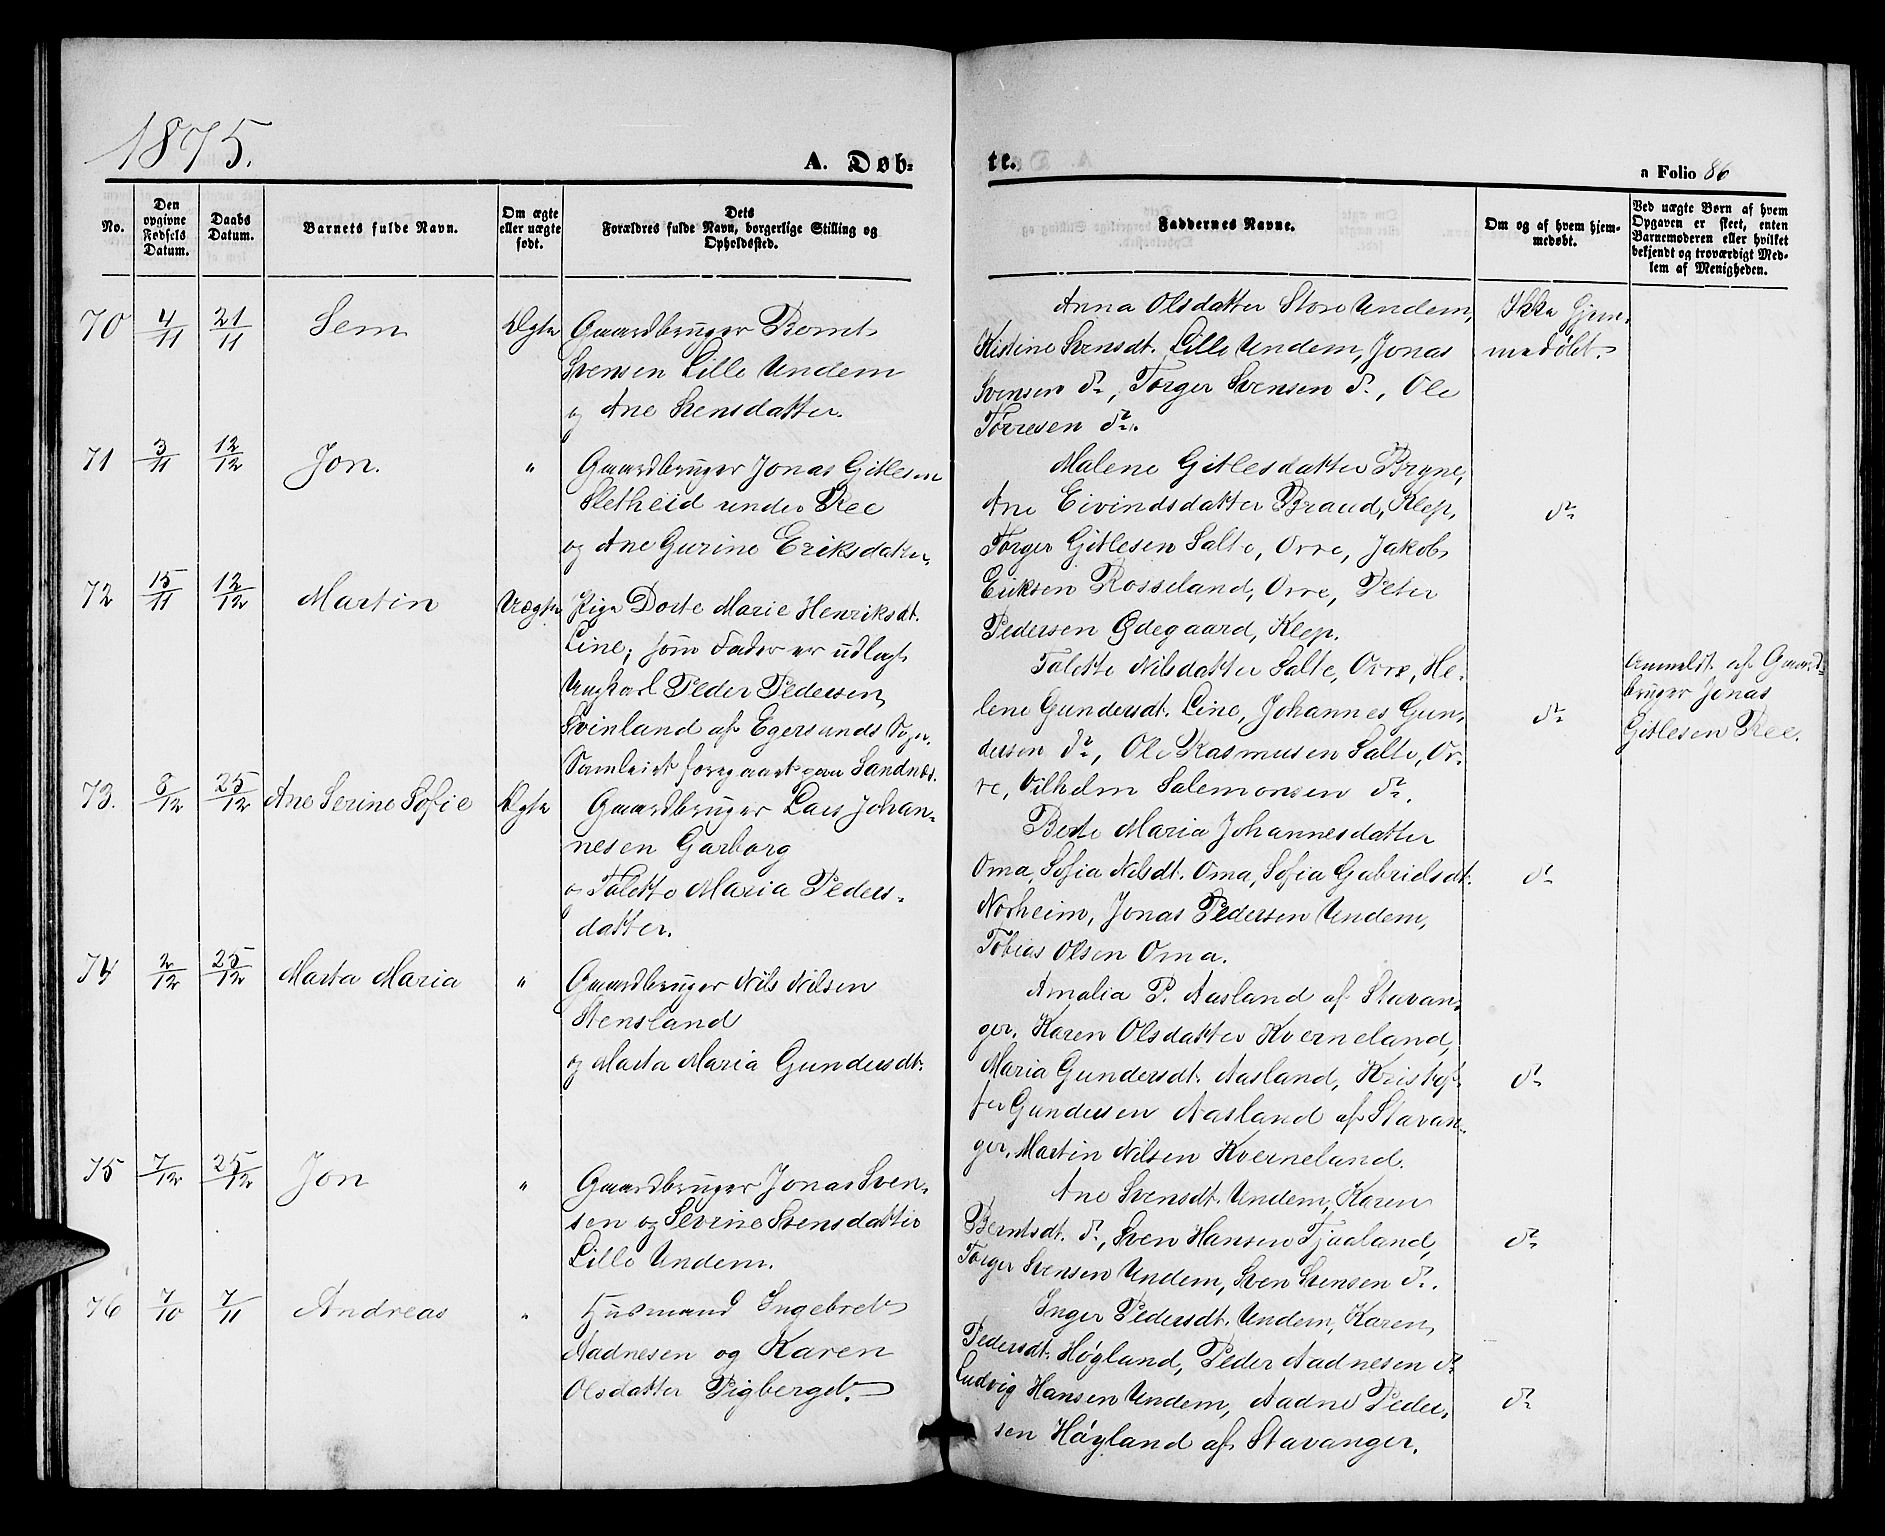 1875.
A. Døb-
te.
a Folio 86
No.
Den
opgivne
Fødsels
Datum.
Daabs
Datum.
Barnets fulde Navn.
Om ægte
eller uægte
født.
Dets
Forældres fulde Navn, borgerlige Stilling og
Opholdssted.
Faddernes Navne.
Om og af hvem hjem-
medøbt.
Ved uægte Børn af hvem
Opgaven er skeet, enten
Barnemoderen eller hvilket
bekjendt og troværdigt Med-
lem af Menigheden.
70 4/11 21/11 Sem Ægte Gaardbruger Bernt
Svensen Lille Undem
og Ane Svensdatter.
Anna Olsdatter Store Undem,
Kistine Svensdt. Lille Undem, Jonas
Svensen do, Torger Svensen do, Ole
Torresen do.
Ikke Hjem-
medøbt.
71 3/11 12/12 Jon. " Gaardbruger Jonas Gitlesen
Sletheid under Ree
og Ane Gurine Eriksdatter.
Malene Gitlesdatter Bryne,
Ane Eivindsdatter Braud, Klep,
Torger Gitlesen Salte, Orre, Jakob
Eriksen Rosseland, Orre, Peter
Pedersen Ødegaard, Klep.
do
72 15/11 12/12 Martin Uægte Pige Dorte Marie Henriksdt.
Line; som Fader er udlagt
Ungkarl Peder Pedersen
Svinland af Egersunds Sogn.
Samleiet foregaaet paa Sandnæs.
Talette Nilsdatter Salte, Orre, He-
lene Gundersdt. Line, Johannes Gun-
dersen do, Ole Rasmusen Salte, Or-
re, Vilhelm Salemonsen do.
do
Anmeldt af Gaard-
bruger Jonas
Gitlesen Ree.
73. 8/12 25/12 Ane Serine Sofie Ægte Gaardbruger Lars Johan-
nesen Garborg
og Talette Maria Peders-
datter.
Berte Maria Johannesdatter
Oma, Sofia Nilsdt. Oma, Sofia Gabrielsdt.
Norheim, Jonas Pedersen Undem,
Tobias Olsen Oma.
do
74 2/12 25/12 Marta Maria " Gaardbruger Nils Nilsen
Stensland
og Marta Maria Gundersdt.
Amalia P. Aasland af Stavan-
ger, Karen Olsdatter Kverneland,
Maria Gundersdt. Aasland, Kristof-
fer Gundersen Aasland af Stavan-
ger, Martin Nilsen Kverneland.
do
75 7/12 25/12 Jon " Gaardbruger Jonas Sven-
sen og Sevine Svensdatter
Lille Undem.
Ane Svensdt. Undem, Karen
Berntsdt. do, Sven Hansen Tjaaland,
Torger Svensen Undem, Sven Svensen do.
do
76 7/10 7/11 Andreas " Husmand Ingebret
Aadnesen og Karen
Olsdatter Pigberget.
Inger Pedersdt. Undem, Karen
Pedersdt. Høgland, Peder Aadnesen do
Ludvig Hansen Undem, Aadne Peder-
sen Høgland af Stavanger.
do